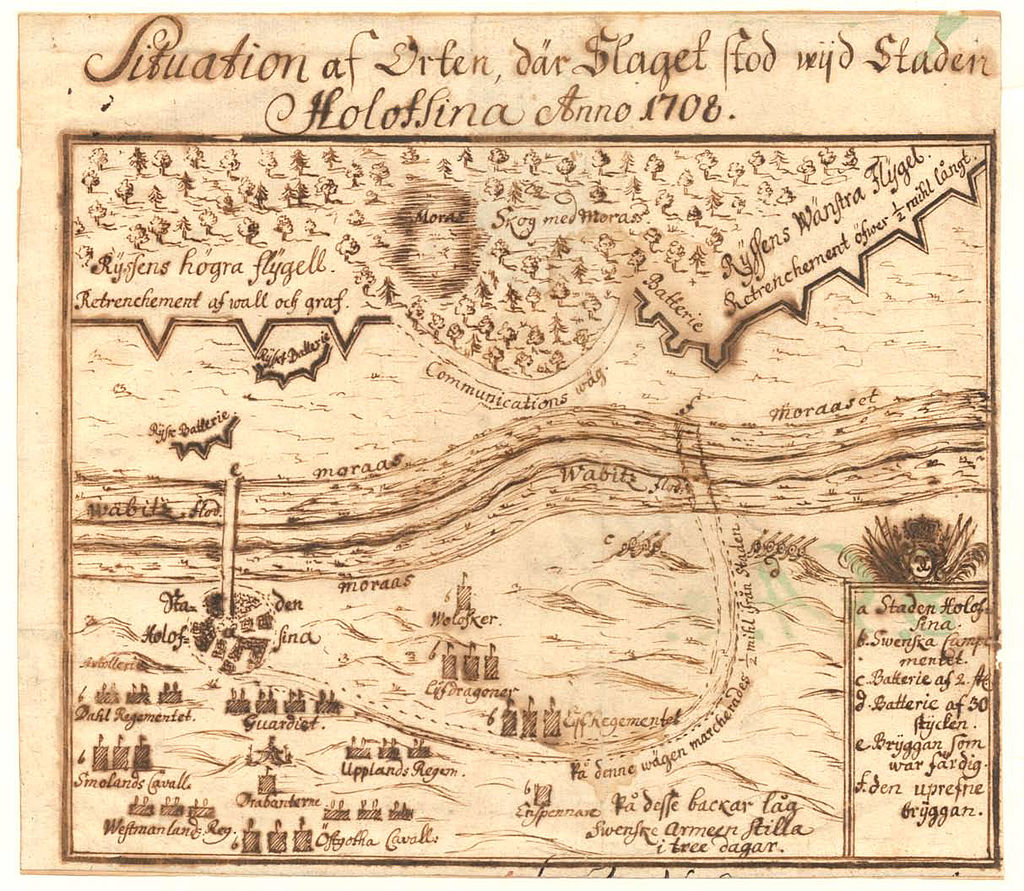 Situation af Orten, där Slaget stod wijd Staden
Holofsina Anno 1708.
Moras
Skog med Moras
Rÿssens högra flÿgell.
Retrenchement af wall och graf.
Rÿssens Wänstra Flÿgel.
Retrenchement öfwer ½ mihl långt.
Batterie
Rÿsk Batterie
Communications wäg
Rÿsk Batterie
e
moraas
moraaset
Wabitz flod.
Wabitz flod.
moraas
c
d
Sta- den
Holof- sina
a
Wolosker.
Lifdragoner
Artollerie
Dahl Regementet.
Guardiet.
Lifregementet
Smolands Cavall.
Upplands Regem.
Drabanterne
Westmanland. Reg.
Östgötha Cavall.
Enspennare
½ mihl från Staden
På denne wägen marcherades
På desse backar låg
Swenske Armeen stilla
i tree dagar.
a Staden Holof-
sina.
b. Swenska Campe
mentet.
c. Batterie af 2. st
d. Batterie af 30
stycken.
e. Brÿggan som
war färdig.
f. den uprefne
brÿggan.